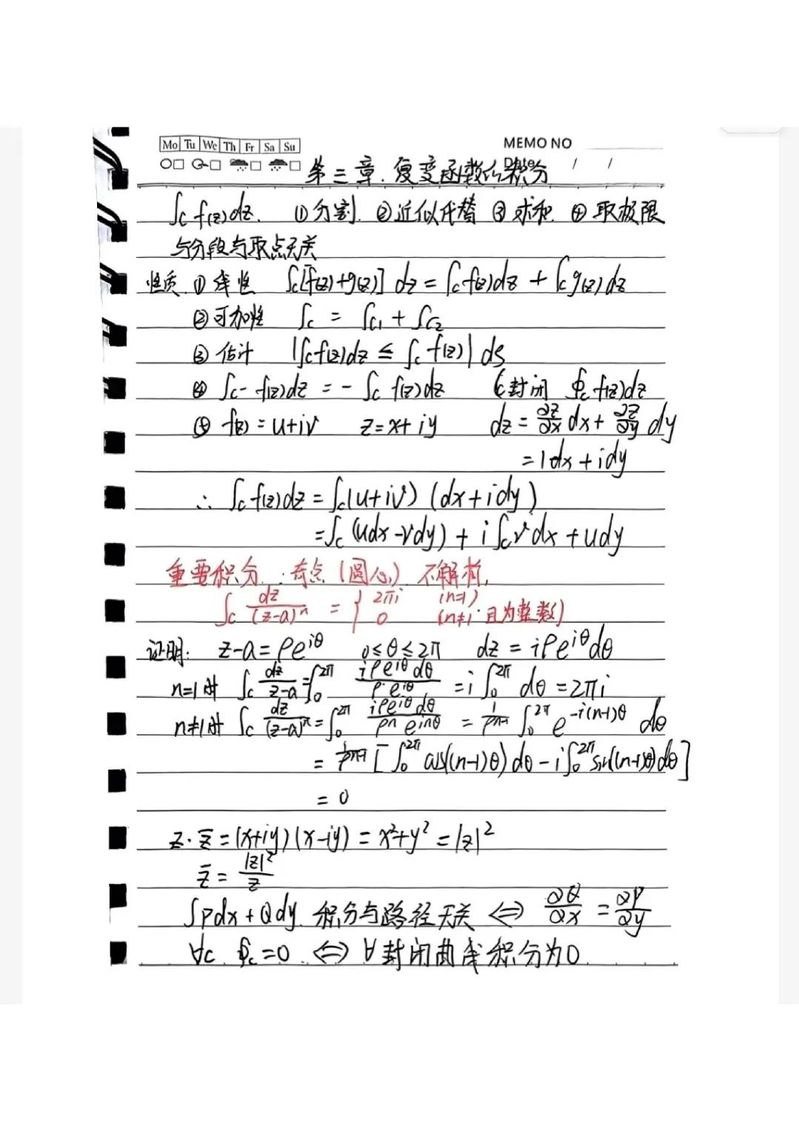 Mo Tu We Th Fr Sa Su
MEMO NO
Date / /
第三章.复变函数的积分
∫_C f(z)dz. ①分割 ②近似代替 ③求和 ④取极限
与分段与取点无关
性质 ①线性 ∫_C[f(z)+g(z)] dz = ∫_C f(z)dz + ∫_C g(z)dz
②可加性 ∫_C = ∫_{C1} + ∫_{C2}
③估计 |∫_C f(z)dz ≤ ∫_C f(z)| ds
④ ∫_{C-} f(z)dz = -∫_C f(z)dz (封闭 ∮_C f(z)dz
⑤ f(z) = u+iv z = x+iy dz = ∂z/∂x dx + ∂z/∂y dy
= 1dx + idy
∴ ∫_C f(z)dz = ∫_C(u+iv) (dx+idy)
= ∫_C (udx-vdy) + i∫_C vdx + udy
重要积分.:奇点(圆心) 不解析,
∫_C dz/(z-a)^n = { 2πi (n=1)
0 (n≠1 且为整数)
证明: z-a = ρe^{iθ} 0≤θ≤2π dz = iρe^{iθ}dθ
n=1时 ∫_C dz/(z-a) = ∫_0^{2π} iρe^{iθ}dθ/ρe^{iθ} = i∫_0^{2π} dθ = 2πi
n≠1时 ∫_C dz/(z-a)^n = ∫_0^{2π} iρe^{iθ}dθ/ρ^n e^{inθ} = i/ρ^{n-1} ∫_0^{2π} e^{-i(n-1)θ} dθ
= i/ρ^{n-1} [∫_0^{2π} cos((n-1)θ) dθ - i∫_0^{2π} sin((n-1)θ)dθ]
= 0
z·z̄ = (x+iy)(x-iy) = x²+y² = |z|²
z̄ = |z|²/z
∫Pdx+Qdy 积分与路径无关 ⇔ ∂Q/∂x = ∂P/∂y
∀C ∮_C = 0 ⇔ ∀封闭曲线积分为0